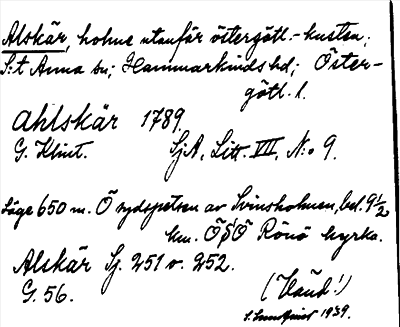 Alskär, holme utanför östergötl.-kusten;
S:t Anna sn; Hammarkinds hd; Öster-
götl. l.
Ahlskär 1789.
G. Klint. SjA, Litt. VII, N:o 9.
Läge 650 m. Ö sydspetsen av Svinsholmen, bel. 9½
km. ÖSÖ Rönö kyrka.
Alskär Sj. 251 o. 252.
G. 56.
1939.